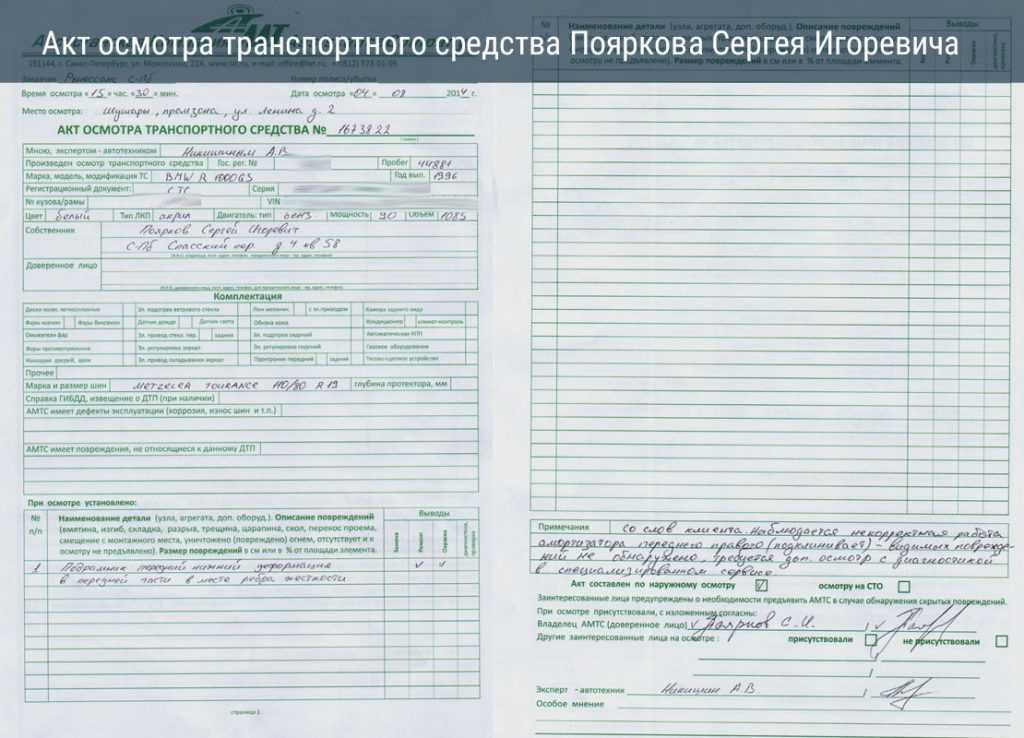 Акт осмотра транспортного средства Пояркова Сергея Игоревича
191144, г. Санкт-Петербург, ул. Моисеенко, 22А, www.
Заказчик Ренессанс С-Пб Номер полиса/убытка
Время осмотра «15» час. «30» мин. Дата осмотра «04» 08 2014 г.
Место осмотра: Шушары, промзона, ул Ленина д. 2
АКТ ОСМОТРА ТРАНСПОРТНОГО СРЕДСТВА № 1673822
Мною, экспертом - автотехником Никишиным А.В
Произведен осмотр транспортного средства Гос. рег. № Пробег 44881
Марка, модель, модификация ТС BMW R 1100GS Год вып. 1996
Регистрационный документ: СТС Серия
№ кузова/рамы VIN
Цвет белый Тип ЛКП акрил Двигатель: тип бенз Мощность 90 Объем 1085
Собственник Поярков Сергей Игоревич
С-Пб Спасский пер. д 4 кв 58
Доверенное лицо
Комплектация
Диски колес легкосплавные Эл. подогрев ветрового стекла Люк механич. с эл.приводом Камера заднего вида
Фары ксенон Фары биксенон Датчик дождя Датчик света Обивка кожа Кондиционер климат-контроль
Омыватели фар Эл. привод стекл. пер. задних Эл. подогрев сидений Автоматическая КПП
Фары противотуманные Эл. регулировка зеркал Эл. регулировка сидений Газовое оборудование
Накладки дверей, арок Эл. привод складывания зеркал Парктроник передний задний Тягово-сцепное устройство
Прочее
Марка и размер шин METZELER TOURANCE 110/80 R 19 глубина протектора, мм
Справка ГИБДД, извещение о ДТП (при наличии)
АМТС имеет дефекты эксплуатации (коррозия, износ шин и т.п.)
АМТС имеет повреждения, не относящиеся к данному ДТП
При осмотре установлено:
№ п/п Наименование детали (узла, агрегата, доп. оборуд.). Описание повреждений Выводы
(вмятина, изгиб, складка, разрыв, трещина, царапина, скол, перекос проема,
смещение с монтажного места, уничтожено (повреждено) огнем, отсутствует и к
осмотру не предъявлено). Размер повреждений в см или в % от площади элемента.
Замена Ремонт Окраска
1 Подкрылник передний нижний деформация v v
в передней части в месте ребра жесткости
страница 1
№ Наименование детали (узла, агрегата, доп. оборуд.). Описание повреждений Выводы
осмотру не предъявлено). Размер повреждений в см или в % от площади элемента.
Примечания Со слов клиента наблюдается некорректная работа
амортизатора переднего правого (подклинивает) - видимых поврежде-
ний не обнаружено, требуется доп. осмотр с диагностикой
в специализированном сервисе.
Акт составлен по наружному осмотру осмотру на СТО
Заинтересованные лица предупреждены о необходимости предъявить АМТС в случае обнаружения скрытых повреждений.
При осмотре присутствовали, с изложенным согласны:
Владелец АМТС (доверенное лицо) v Поярков С.И. / v
Другие заинтересованные лица на осмотре : присутствовали не присутствовали
Эксперт - автотехник Никишин А.В /
Особое мнение